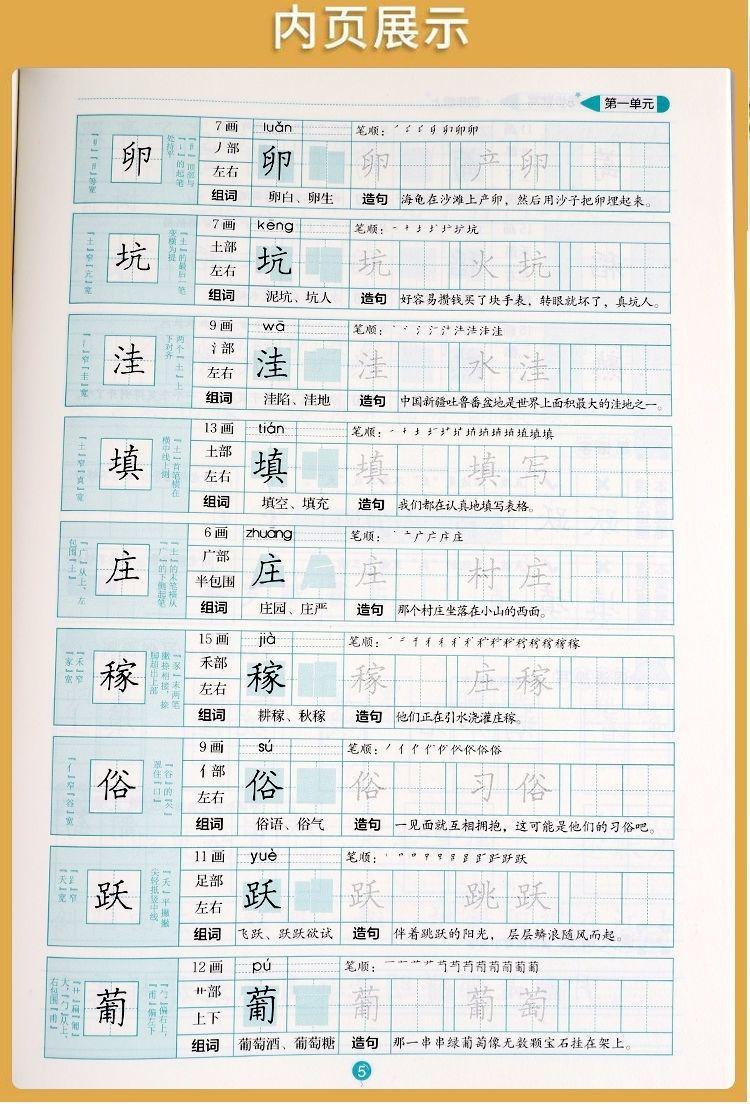 内页展示
第一单元
7画 luǎn 笔顺:
卵 丿部 卵 卵 产卵
左右
组词 卵白、卵生 造句 海龟在沙滩上产卵，然后用沙子把卵埋起来。
7画 kēng 笔顺:
坑 土部 坑 坑 火坑
左右
组词 泥坑、坑人 造句 好容易攒钱买了块手表，转眼就坏了，真坑人。
9画 wā 笔顺:
洼 氵部 洼 洼 水洼
左右
组词 洼陷、洼地 造句 中国新疆吐鲁番盆地是世界上面积最大的洼地之一。
13画 tián 笔顺:
填 土部 填 填 填写
左右
组词 填空、填充 造句 我们都在认真地填写表格。
6画 zhuāng 笔顺:
庄 广部 庄 庄 村庄
半包围
组词 庄园、庄严 造句 那个村庄坐落在小山的西面。
15画 jià 笔顺:
稼 禾部 稼 稼 庄稼
左右
组词 耕稼、秋稼 造句 他们正在引水浇灌庄稼。
9画 sú 笔顺:
俗 亻部 俗 俗 习俗
左右
组词 俗语、俗气 造句 一见面就互相拥抱，这可能是他们的习俗吧。
11画 yuè 笔顺:
跃 足部 跃 跃 跳跃
左右
组词 飞跃、跃跃欲试 造句 伴着跳跃的阳光，层层鳞浪随风而起。
12画 pú 笔顺:
葡 艹部 葡 葡 葡萄
上下
组词 葡萄酒、葡萄糖 造句 那一串串绿葡萄像无数颗宝石挂在架上。
5